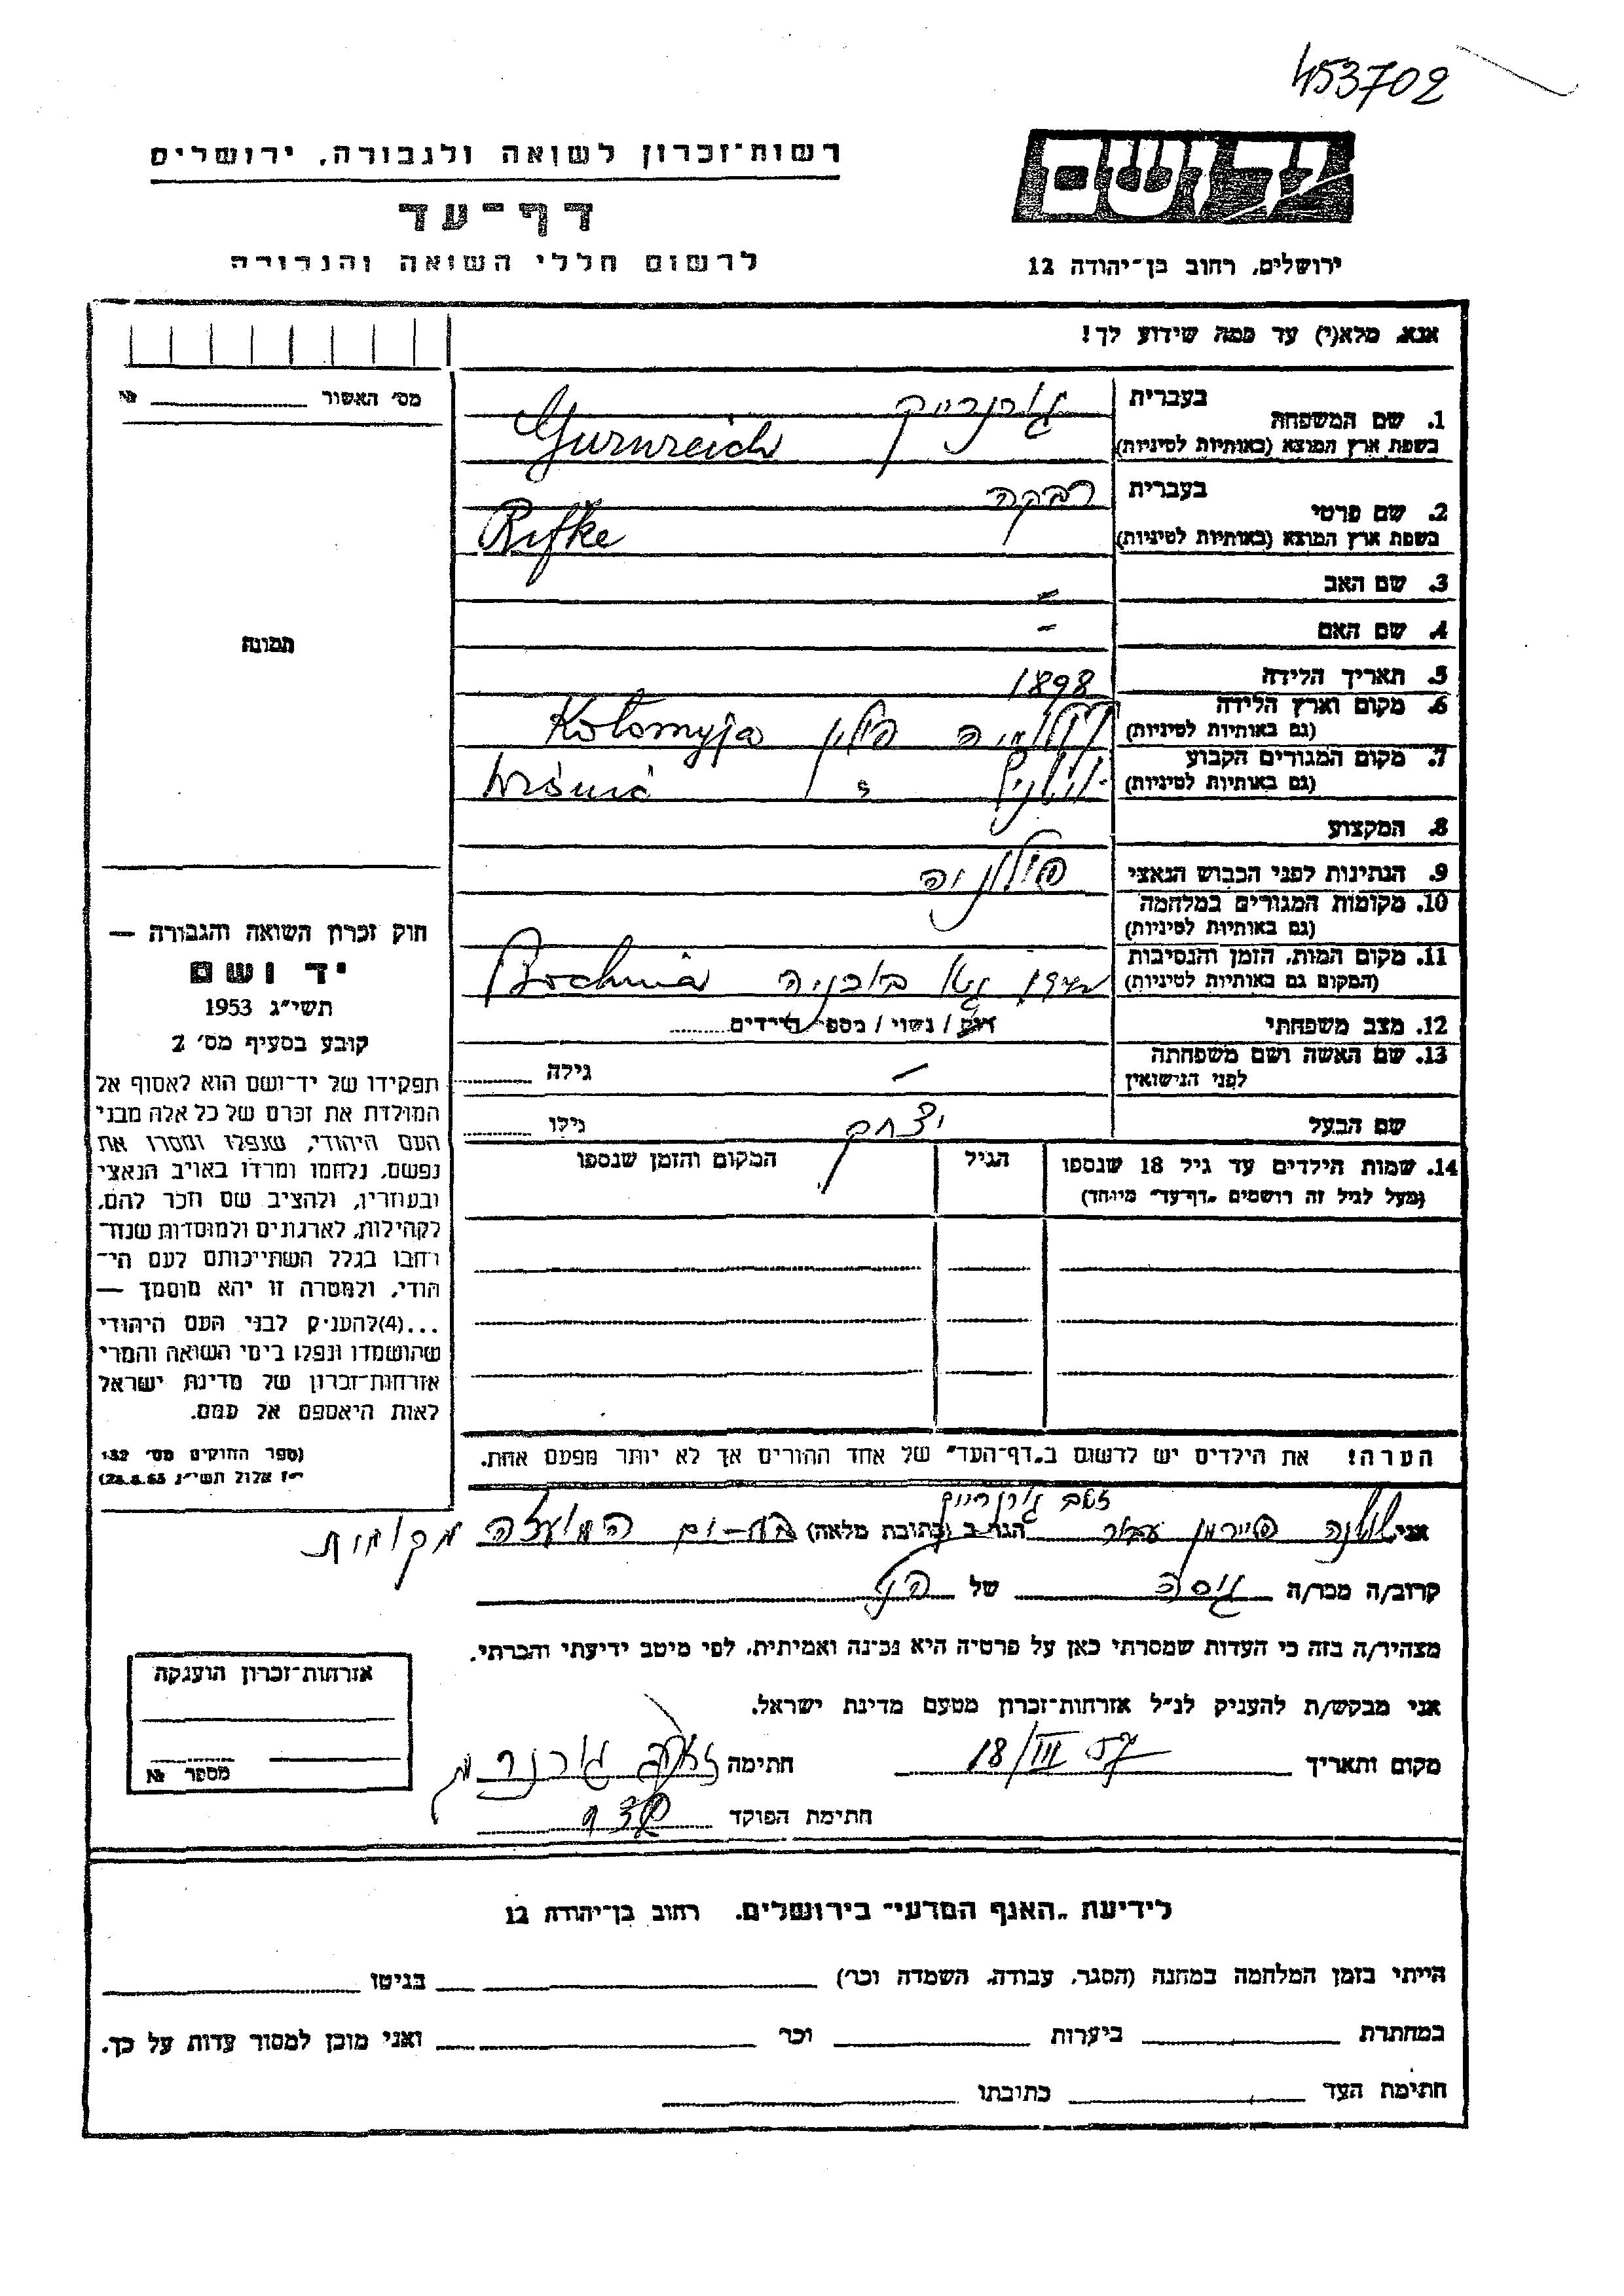 453702
רשות־זכרון לשואה ולגבורה, ירושלים
דף־עד
לרשום חללי השואה והגבורה
ידושם
ירושלים, רחוב בן־יהודה 12
אנא, מלא(י) עד כמה שידוע לך!
מס׳ האשור № 
1. שם המשפחה בעברית גורנרייך
בשפת ארץ המוצא (באותיות לטיניות) Gurnreich
2. שם פרטי בעברית רבקה
בשפת ארץ המוצא (באותיות לטיניות) Rifke
3. שם האב =
4. שם האם -
5. תאריך הלידה 1898
6. מקום וארץ הלידה (גם באותיות לטיניות) קולומיה פולין Kołomyja
7. מקום המגורים הקבוע (גם באותיות לטיניות) "
8. המקצוע
9. הנתינות לפני הכבוש הנאצי פולניה
10. מקומות המגורים במלחמה (גם באותיות לטיניות)
11. מקום המות, הזמן והנסיבות (המקום גם באותיות לטיניות) גטו בוכניה Bochnia
12. מצב משפחתי רווק / נשוי / מספר הילדים
13. שם האשה ושם משפחתה לפני הנישואין — גילה
שם הבעל יצחק גילו
14. שמות הילדים עד גיל 18 שנספו הגיל המקום והזמן שנספו
(מעל לגיל זה רושמים „דף־עד״ מיוחד)
תמונה
חוק זכרון השואה והגבורה —
יד ושם
תשי״ג 1953
קובע בסעיף מס׳ 2
תפקידו של יד־ושם הוא לאסוף אל
המולדת את זכרם של כל אלה מבני
העם היהודי, שנפלו ומסרו את
נפשם, נלחמו ומרדו באויב הנאצי
ובעוזריו, ולהציב שם וזכר להם,
לקהילות, לארגונים ולמוסדות שנח־
רחבו בגלל השתייכותם לעם הי־
הודי, ולמטרה זו יהא מוסמך —
...(4)להעניק לבני העם היהודי
שהושמדו ונפלו בימי השואה והמרי
אזרחות־זכרון של מדינת ישראל
לאות היאספם אל עמם.
(ספר החוקים מס׳ 132
י״ז אלול תשי״ג 28.8.53)
הערה! את הילדים יש לרשום ב„דף־העד״ של אחד ההורים אך לא יותר מפעם אחת.
אני שושנה עבור זאב גורנרייך הגר ב (כתובת מלאה) בת-ים
קרוב/ה מכר/ה גיסה של הנ״ל
מצהיר/ה בזה כי העדות שמסרתי כאן על פרטיה היא נכונה ואמיתית, לפי מיטב ידיעתי והכרתי.
אני מבקש/ת להעניק לנ״ל אזרחות־זכרון מטעם מדינת ישראל.
מקום ותאריך 18/III 57 חתימה
חתימת הפוקד
אזרחות־זכרון הוענקה
מספר №
לידיעת „האגף המדעי״ בירושלים, רחוב בן־יהודה 12
הייתי בזמן המלחמה במחנה (הסגר, עבודה, השמדה וכו׳) בגיטו
במחתרת ביערות וכו׳ ואני מוכן למסור עדות על כך.
חתימת העד כתובתו